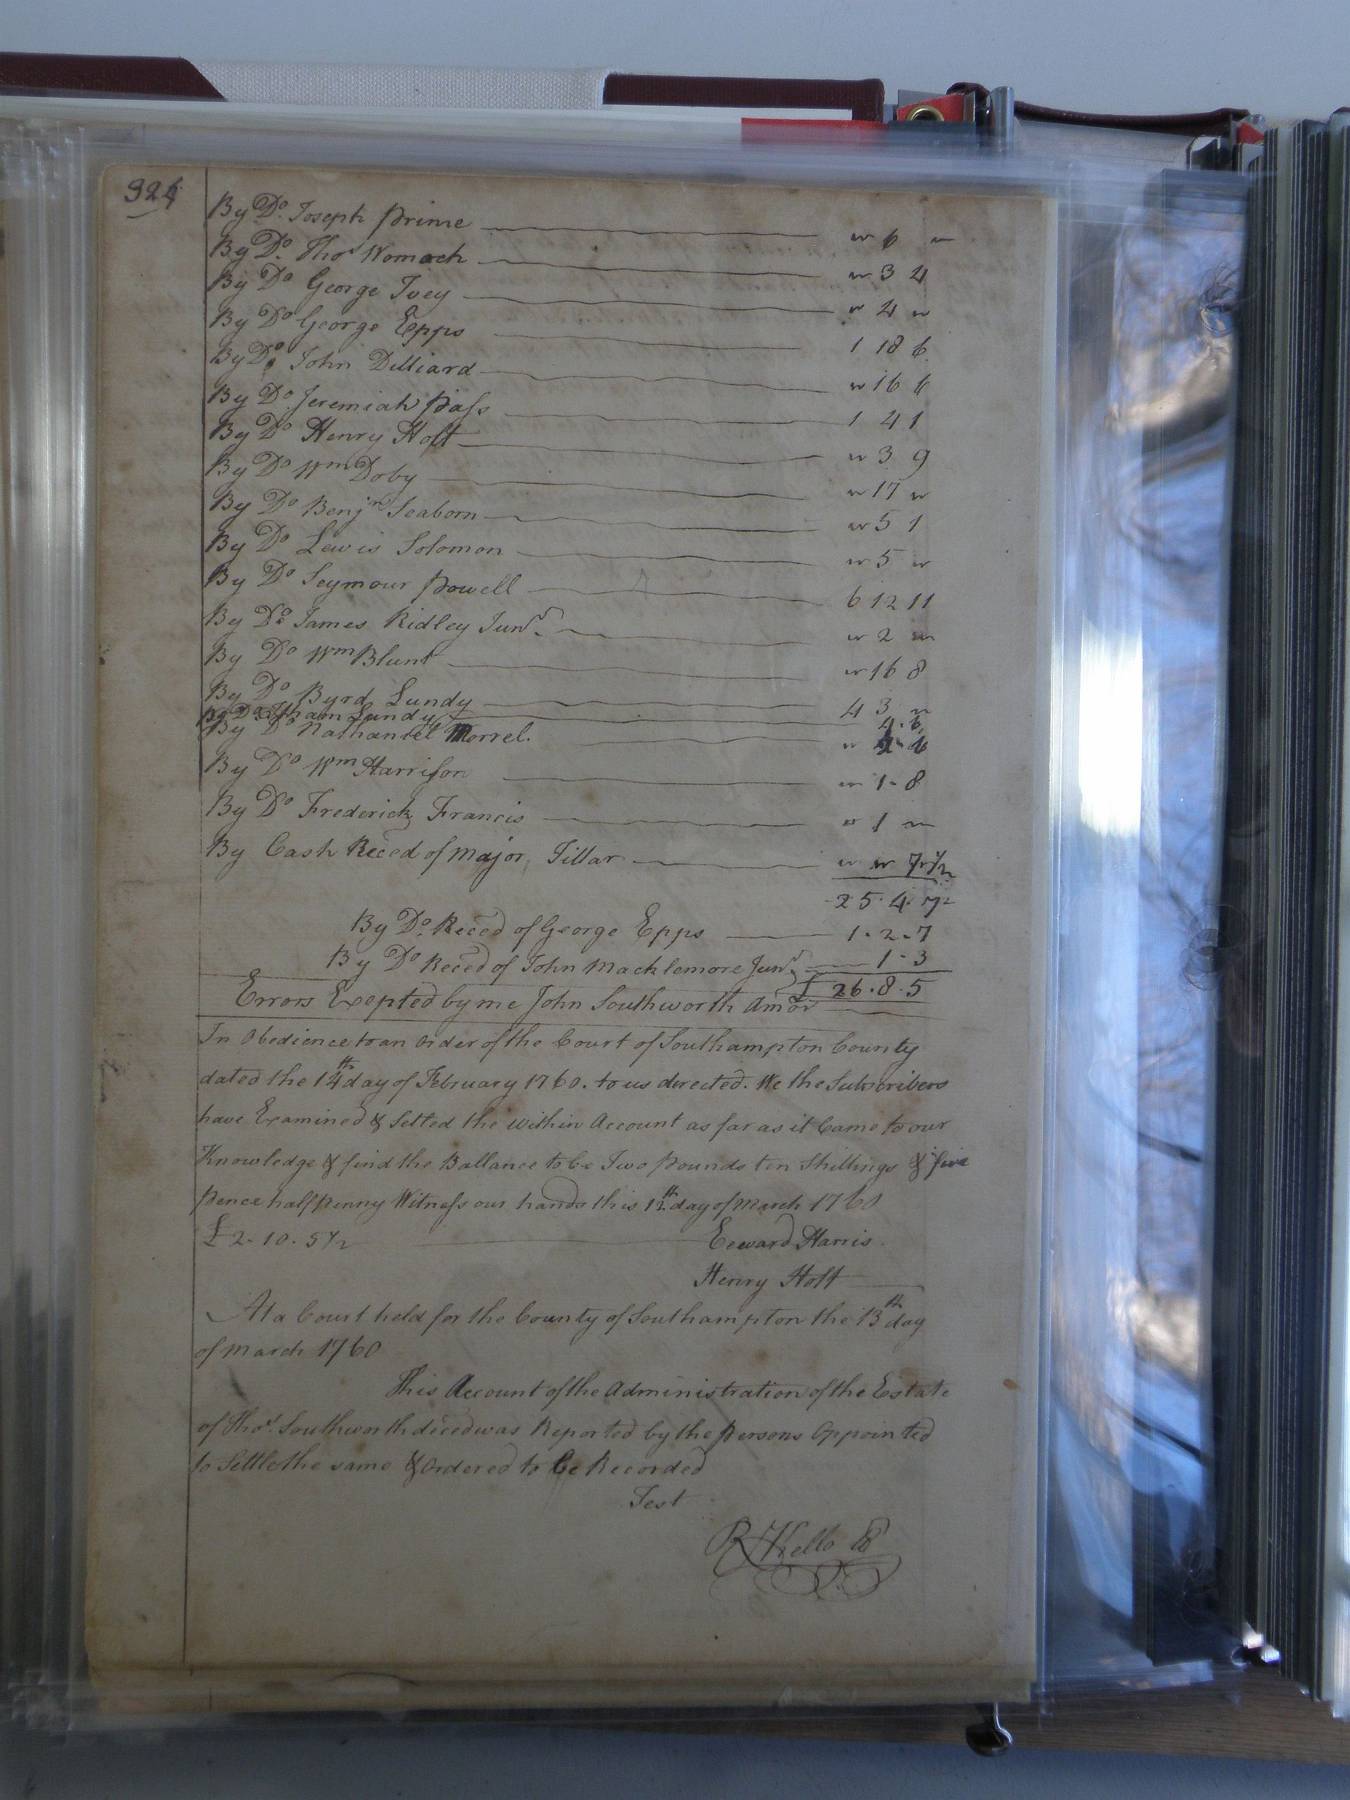 324
By Do. Joseph Prime " 6 "
By Do. Thos Womack " 3 4
By Do George Ivey " 4 "
By Do George Epps 1 18 6
By Do. John Dilliard " 16 6
By Do Jeremiah Pass 1 4 1
By Do Henry Holt " 3 9
By Do Wm Doby " 17 "
By Do Benjn Seaborn " 5 1
By Do Lewis Solomon " 5 "
By Do Seymour Powell 6 12 11
By Do James Ridley Junr. " 2 "
By Do Wm Blunt " 16 8
By Do Byrd Lundy 4 3 "
By Do Lundy 4.6
By Do Nathaniel Morrel. "
By Do Wm Harrison " 1.8
By Do Frederick Francis " 1 "
By Cash Reced of Major Tillar " " 7 1/2
25.4.7
By Do. Reced of George Epps 1.2.7
By Do Reced of John Macklemore Junr. 1.3
Errors Exepted by me John Southworth Amor £ 26.8.5
In Obedience to an order of the Court of Southampton County
dated the 14th day of February 1760. to us directed. We the Subscribers
have Examined & Setled the within Account as far as it Came to our
Knowledge & find the Ballance to be Two Pounds ten Shillings & five
pence half penny Witness our hands this 12th day of March 1760
£ 2.10.5 1/2 Edward Harris
Henry Holt
At a Court held for the County of Southampton the 13th day
of March 1760
This Account of the Administration of the Estate
of Thos. Southworth deced was Reported by the persons Appointed
to Settle the same & ordered to be Recorded
Test
R Kello